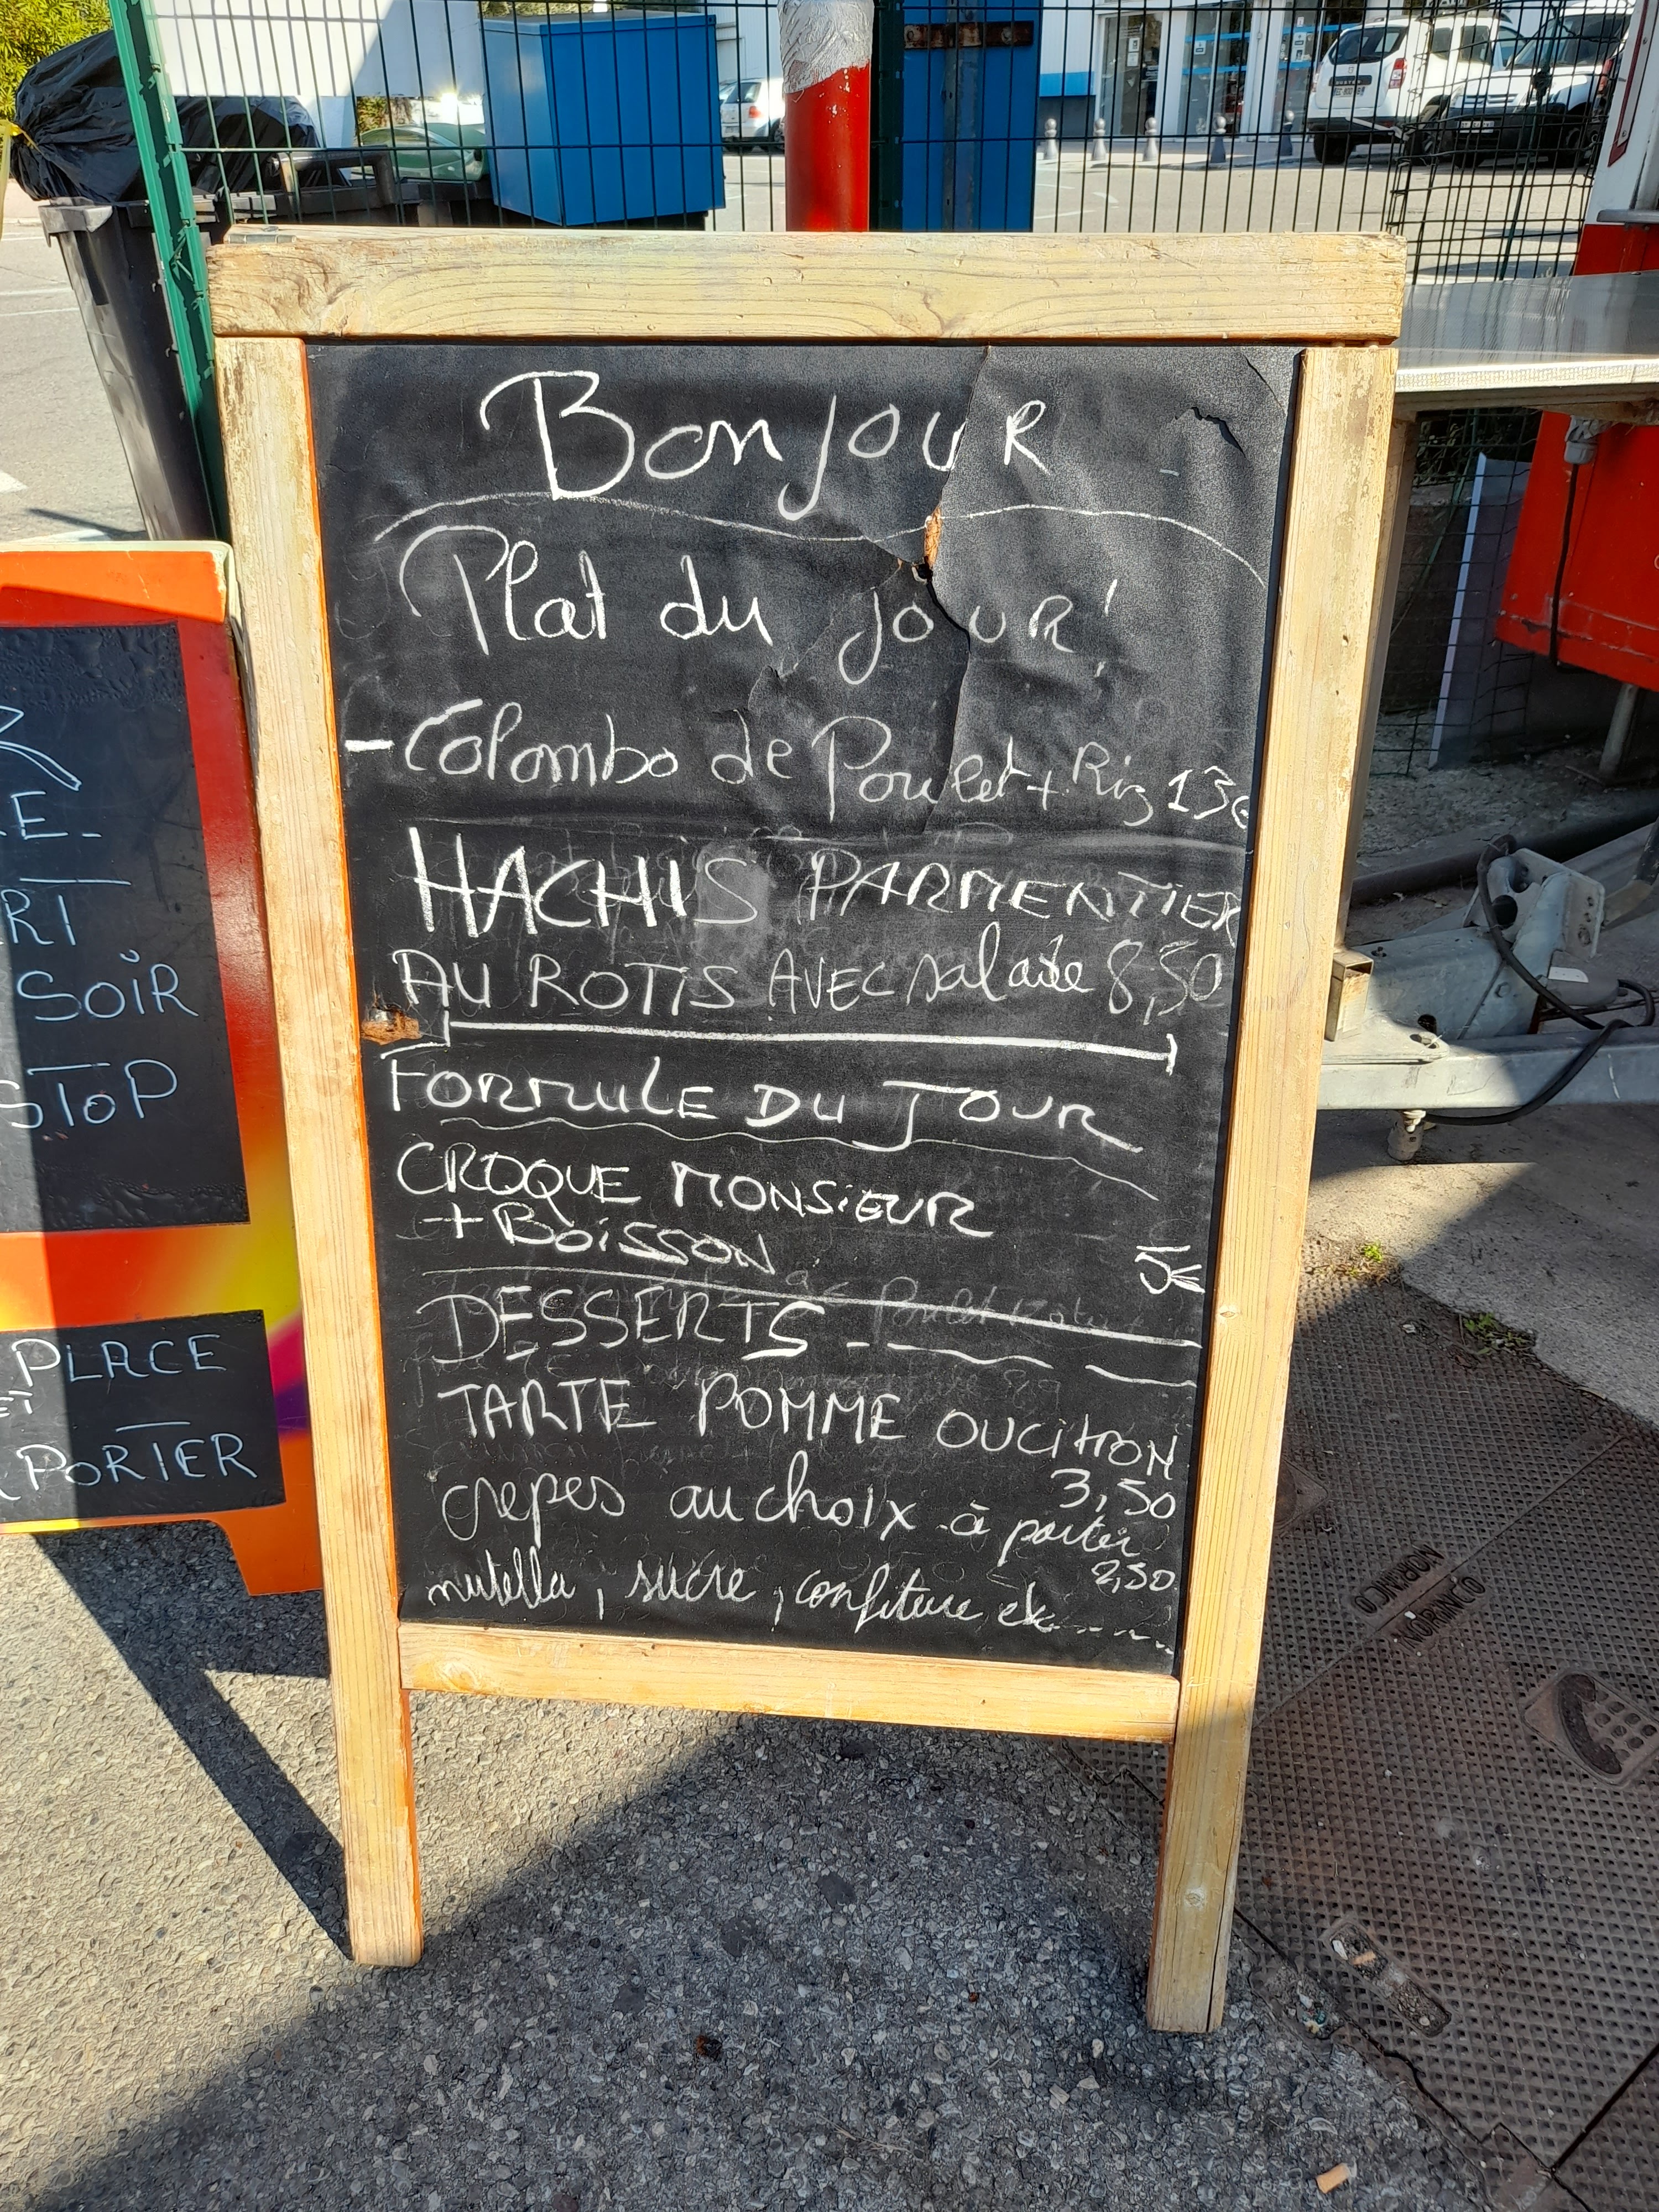 Bonjour
Plat du jour!
- Colombo de Poulet + Riz 13€
HACHIS PARMENTIER
AU ROTIS AVEC salade 8,50
FORMULE DU JOUR
CROQUE MONSIEUR
+ BOISSON
5€
DESSERTS
TARTE POMME OU CITRON
3,50
crepes au choix à porter
2,50
nutella, sucre, confiture etc.......
E-
RT
SOIR
STOP
PLACE
PORTER
NORINCO
NORINCO